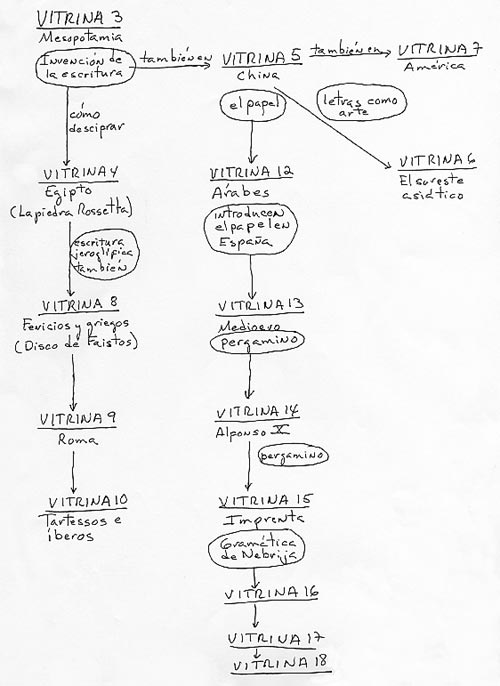 VITRINA 3
Mesopotamia
Invención de
la escritura
también en
VITRINA 5
China
también en
VITRINA 7
América
cómo
desciprar
el papel
letras como
arte
VITRINA 4
Egipto
(La piedra Rossetta)
VITRINA 12
Árabes
VITRINA 6
El sureste
asiático
escritura
jeroglípica
también
introducen
el papel en
España
VITRINA 8
Fenicios y griegos
(Disco de Faistos)
VITRINA 13
Medioevo
pergamino
VITRINA 9
Roma
VITRINA 14
Alfonso X
pergamino
VITRINA 10
Tartessos e
íberos
VITRINA 15
Imprenta
Gramática
de Nebrija
VITRINA 16
VITRINA 17
VITRINA 18